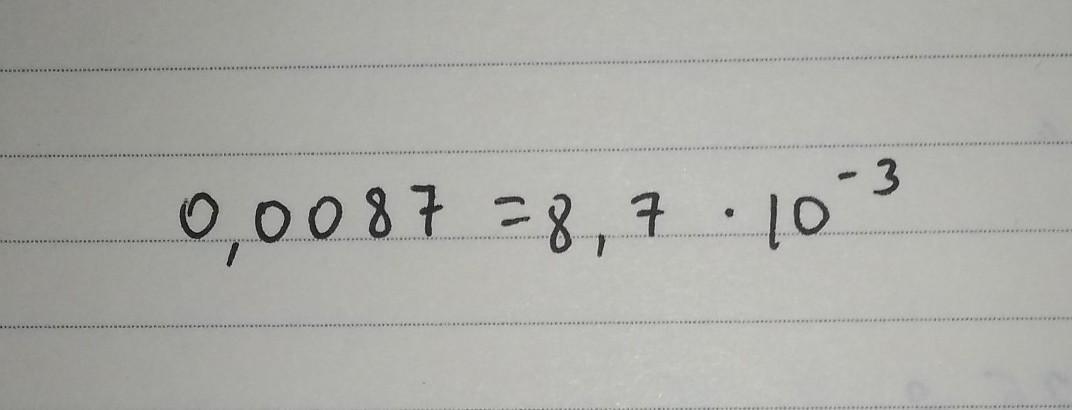 0,0087 = 8,7 · 10⁻³